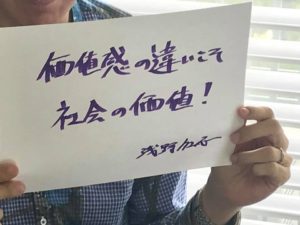 価値感の違いこそ
社会の価値!
浅野